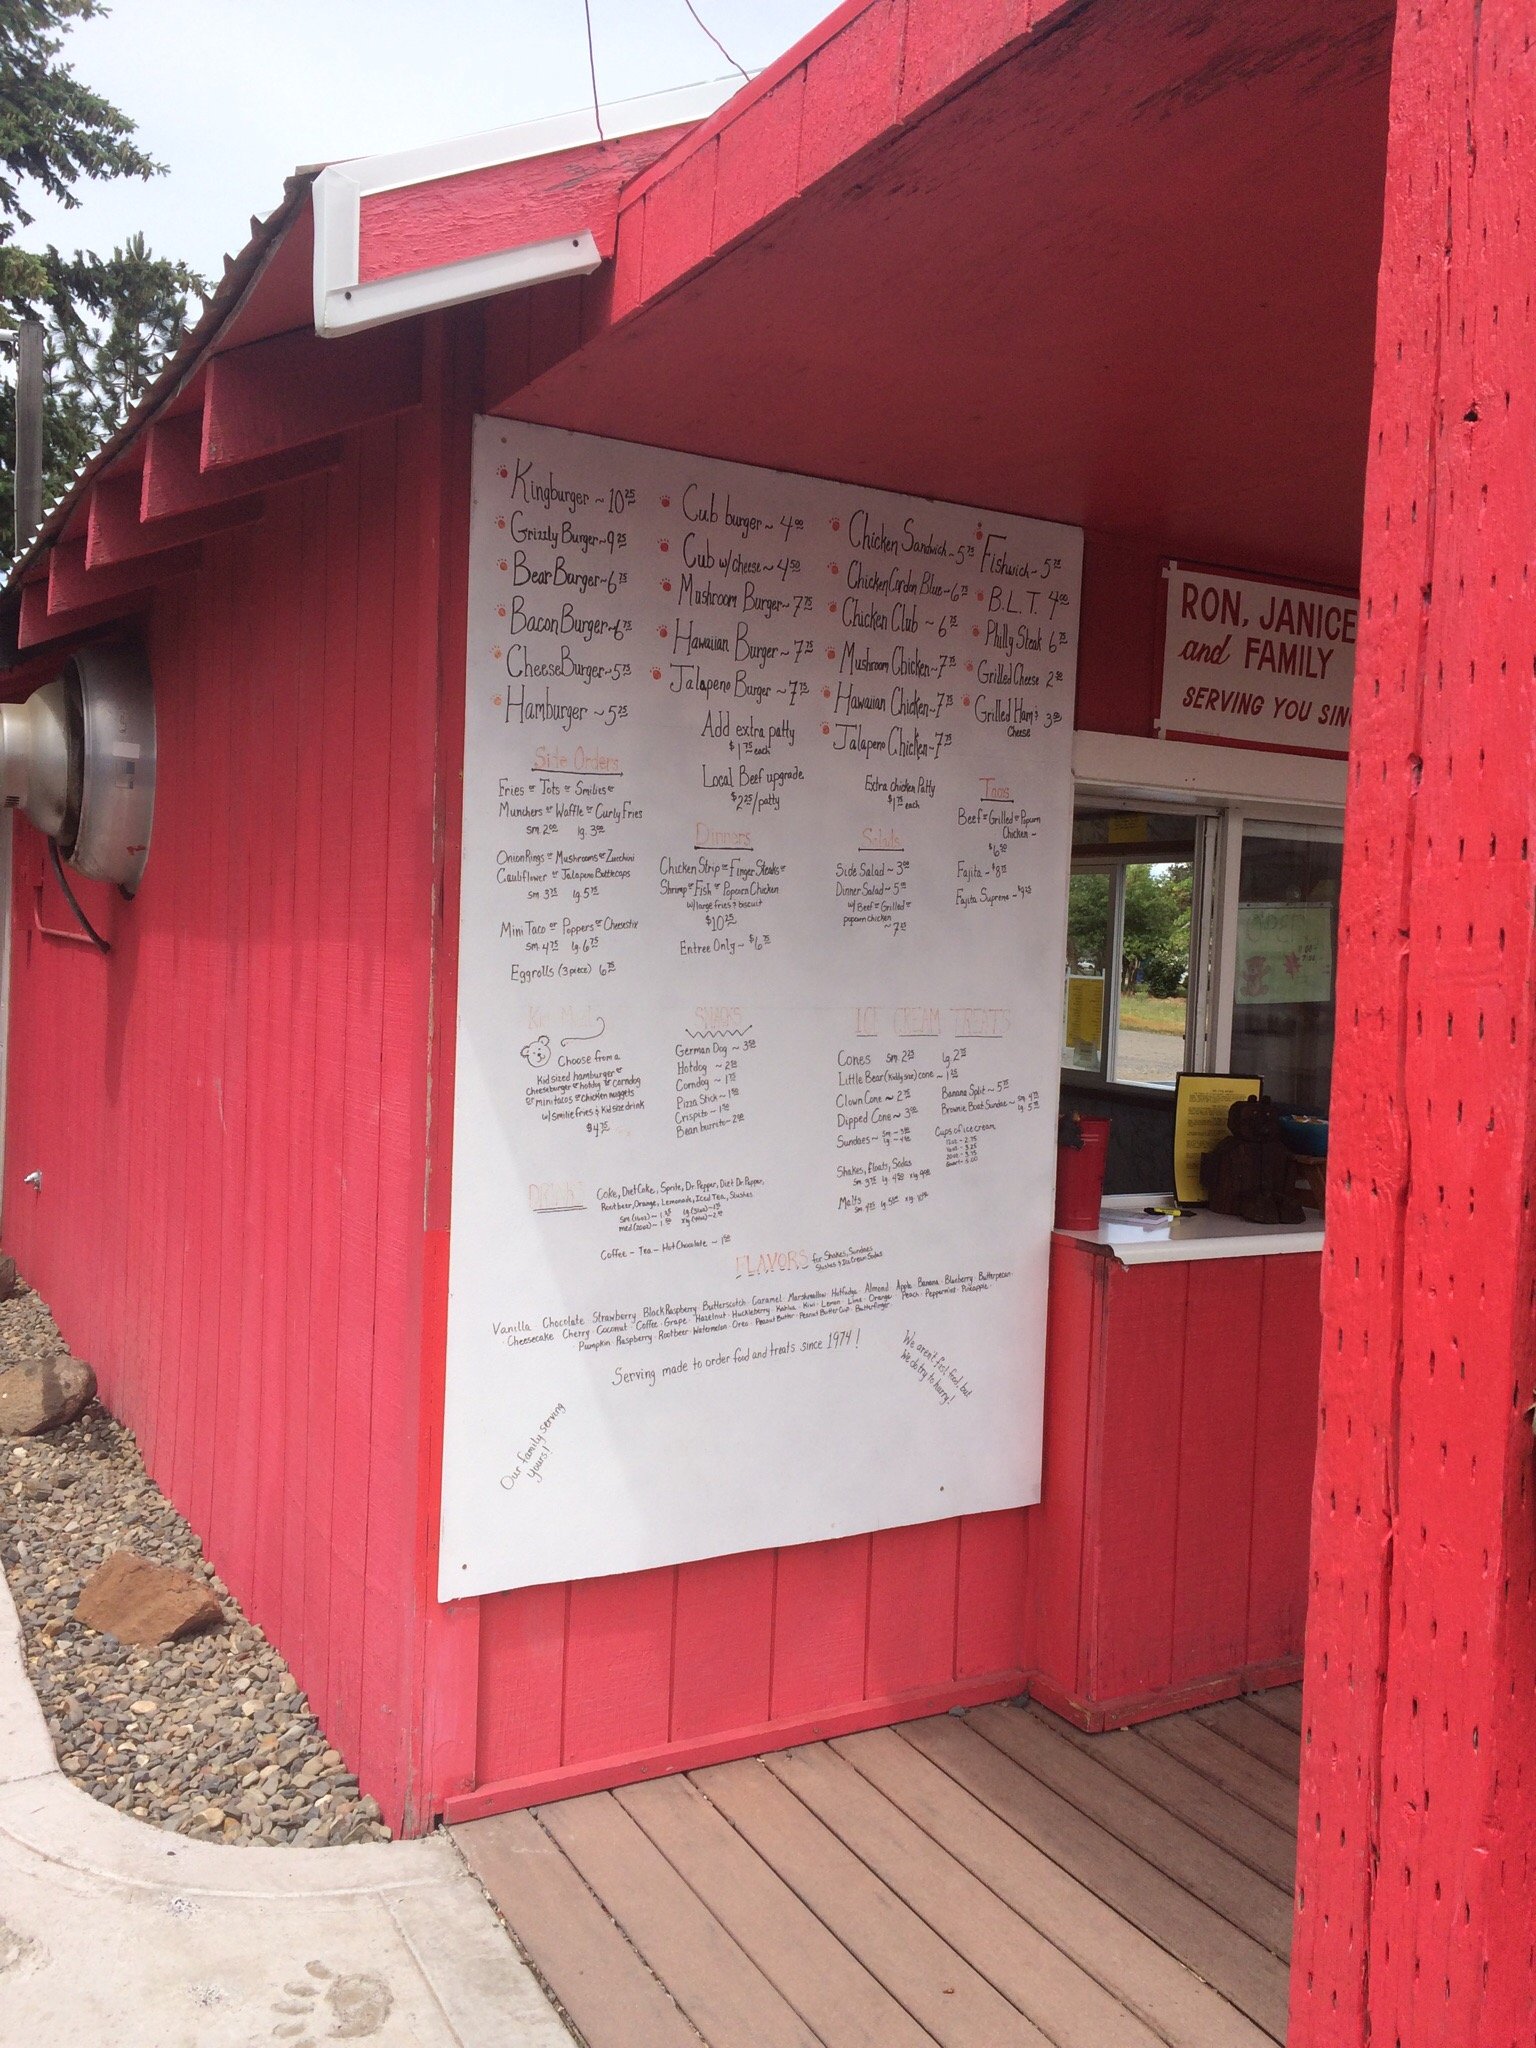 Kingburger ~ 10.25
Grizzly Burger ~ 9.25
Bear Burger ~ 6.75
Bacon Burger ~ 6.75
Cheese Burger ~ 5.75
Hamburger ~ 5.25
Cub burger ~ 4.00
Cub w/cheese ~ 4.50
Mushroom Burger ~ 7.75
Hawaiian Burger ~ 7.75
Jalapeno Burger ~ 7.75
Add extra patty
$1.75 each
Local Beef upgrade
$2.25/patty
Chicken Sandwich ~ 5.75
Chicken Cordon Blue ~ 6.75
Chicken Club ~ 6.75
Mushroom Chicken ~ 7.75
Hawaiian Chicken ~ 7.75
Jalapeno Chicken ~ 7.75
Extra chicken Patty
$1.75 each
Fishwich ~ 5.75
B.L.T. 4.00
Philly Steak 6.75
Grilled Cheese 2.50
Grilled Ham & Cheese 3.50
Side Orders
Fries or Tots or Smilies or
Munchers or Waffle or Curly Fries
sm. 2.00 lg. 3.00
Onion Rings or Mushrooms or Zucchini
Cauliflower or Jalapeno Bottlecaps
sm. 3.75 lg. 5.75
Mini Taco or Poppers or Cheesestix
sm. 4.75 lg. 6.75
Eggrolls (3 piece) 6.75
Dinners
Chicken Strip or Finger Steaks or
Shrimp or Fish or Popcorn Chicken
w/ large fries & biscuit
$10.25
Entree Only ~ $6.75
Salads
Side Salad ~ 3.00
Dinner Salad ~ 5.00
w/ Beef or Grilled or
popcorn chicken
Tacos
Beef or Grilled or Popcorn
Chicken ~
$6.50
Fajita ~ $8.75
Fajita Supreme ~ $9.25
Kid Meal
Choose from a
Kid sized hamburger or
Cheeseburger or hotdog or corndog
or mini tacos or Chicken nuggets
w/ Smilie fries & Kid size drink
$4.75
SNACKS
German Dog ~ 3.50
Hotdog ~ 2.50
Corndog ~ 1.75
Pizza Stick ~ 1.50
Crispito ~ 1.50
Bean burrito ~ 2.00
ICE CREAM TREATS
Cones sm. 2.25 lg. 2.75
Little Bear (Kiddy size) cone ~ 1.25
Clown Cone ~ 2.75
Dipped Cone ~ 3.00
Sundaes ~ sm. ~ lg. ~
Banana Split ~ 5.75
Brownie Boat Sundae ~ sm. 4.75
lg. 5.75
Cups of ice cream
12oz - 2.75
16oz - 3.25
20oz - 3.75
Quart - 5.00
Shakes, floats, Sodas
sm. 3.75 lg. 4.50 xlg.
Malts
sm. 4.75 lg. xlg.
DRINKS
Coke, Diet Coke, Sprite, Dr. Pepper, Diet Dr. Pepper,
Rootbeer, Orange, Lemonade, Iced Tea, Slushes
sm (16oz) ~ lg (32oz) ~
med (20oz) ~ xlg (44oz) ~
Coffee - Tea - Hot Chocolate ~ 1.50
FLAVORS for Shakes, Sundaes
Slushes & Ice Cream Sodas
Vanilla · Chocolate · Strawberry · Black Raspberry · Butterscotch · Caramel · Marshmallow · Hotfudge · Almond · Apple · Banana · Blueberry · Butterpecan ·
Cheesecake · Cherry · Coconut · Coffee · Grape · Hazelnut · Huckleberry · Kahlua · Kiwi · Lemon · Lime · Orange · Peach · Peppermint · Pineapple
· Pumpkin · Raspberry · Rootbeer · Watermelon · Oreo · Peanut Butter · Peanut Butter Cup · Butterfinger
Serving made to order food and treats since 1974!
We aren't fast food, but
We do try to hurry!
Our family serving
yours!
RON, JANICE
and FAMILY
SERVING YOU SIN